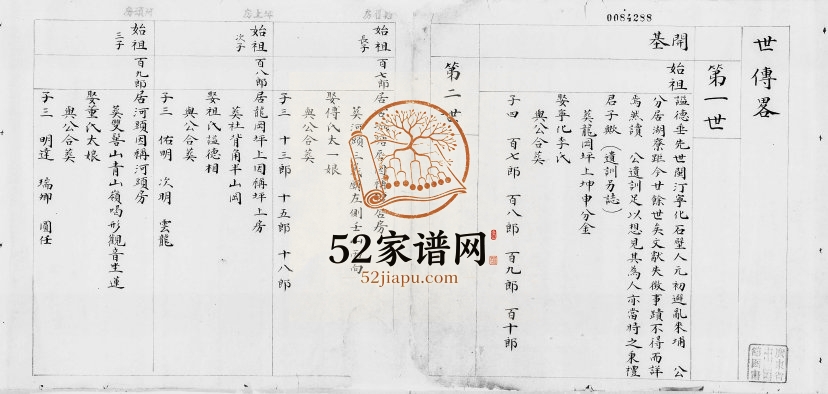 0084288
世傳畧
第一世
開基
始祖 諡德垂先世閩汀寧化石壁人元初避亂來埔 公
分居湖寮距今廿餘世矣文獻失徵事蹟不得而詳
焉然讀 公遺訓足以想見其為人亦當時之秉禮
君子歟(遺訓另誌)
葬龍岡坪上坤申分金
娶寧化李氏
與公合葬
子四 百七郎 百八郎 百九郎 百十郎
第二世
房
始祖長子 百七郎居
葬河頭
左側壬
娶傅氏大一娘
與公合葬
子三 十三郎 十五郎 十八郎
坪上房
始祖次子 百八郎居龍岡坪上因稱坪上房
葬社背角半山岡
娶祖氏諡德相
與公合葬
子三 佑明 次明 雲龍
河頭房
始祖三子 百九郎居河頭因稱河頭房
葬雙髻山青山嶺喝形觀音坐蓮
娶董氏大娘
與公合葬
子三 明達 瑞卿 圓任
52家谱网
52jiapu.com